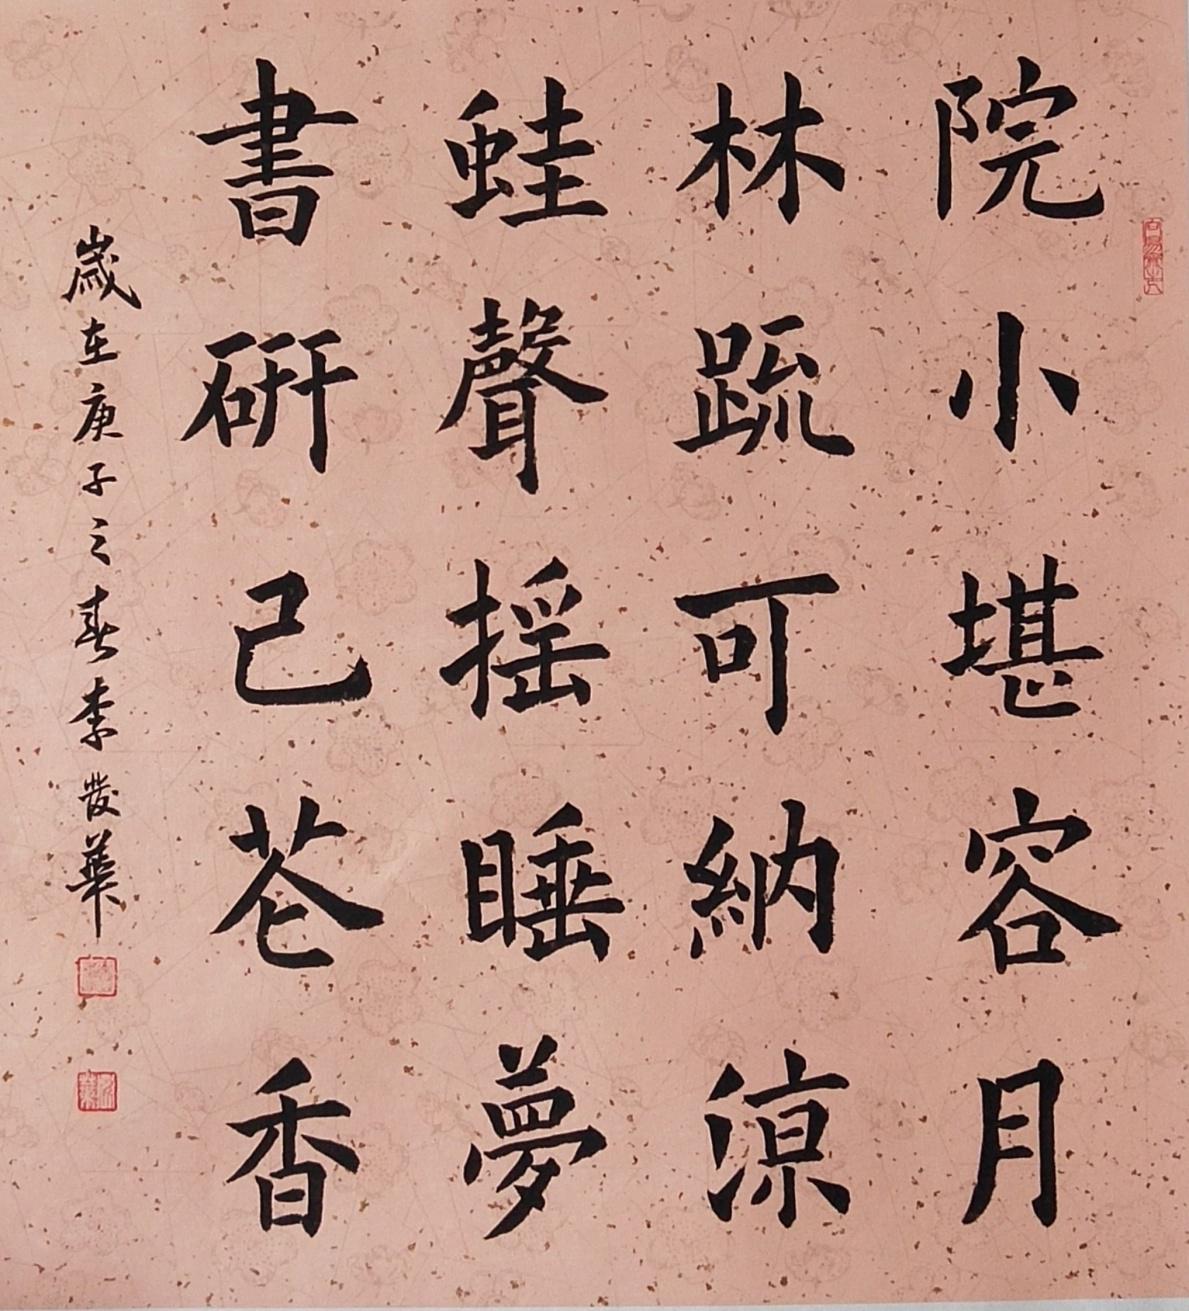 院小堪容月
林疏可納涼
蛙聲摇睡夢
書研己苍香
歲在庚子之春李發華